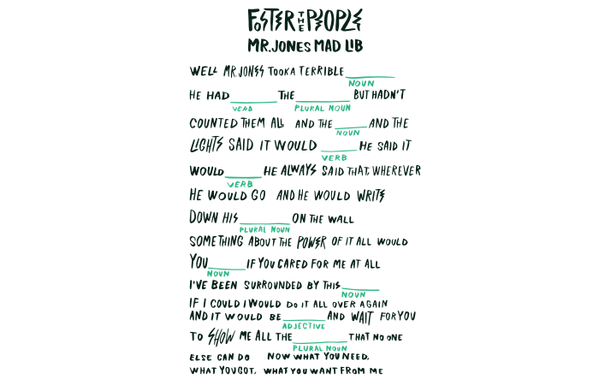 FOSTER THE PEOPLE
MR. JONES MAD LIB
WELL MR. JONES TOOK A TERRIBLE
NOUN
HE HAD THE BUT HADN'T
VERB PLURAL NOUN
COUNTED THEM ALL AND THE AND THE
NOUN
LIGHTS SAID IT WOULD HE SAID IT
VERB
WOULD HE ALWAYS SAID THAT, WHEREVER
VERB
HE WOULD GO AND HE WOULD WRITE
DOWN HIS ON THE WALL
PLURAL NOUN
SOMETHING ABOUT THE POWER OF IT ALL WOULD
YOU IF YOU CARED FOR ME AT ALL
NOUN
I'VE BEEN SURROUNDED BY THIS
NOUN
IF I COULD I WOULD DO IT ALL OVER AGAIN
AND IT WOULD BE AND WAIT FOR YOU
ADJECTIVE
TO SHOW ME ALL THE THAT NO ONE
PLURAL NOUN
ELSE CAN DO NOW WHAT YOU NEED,
WHAT YOU GOT, WHAT YOU WANT FROM ME